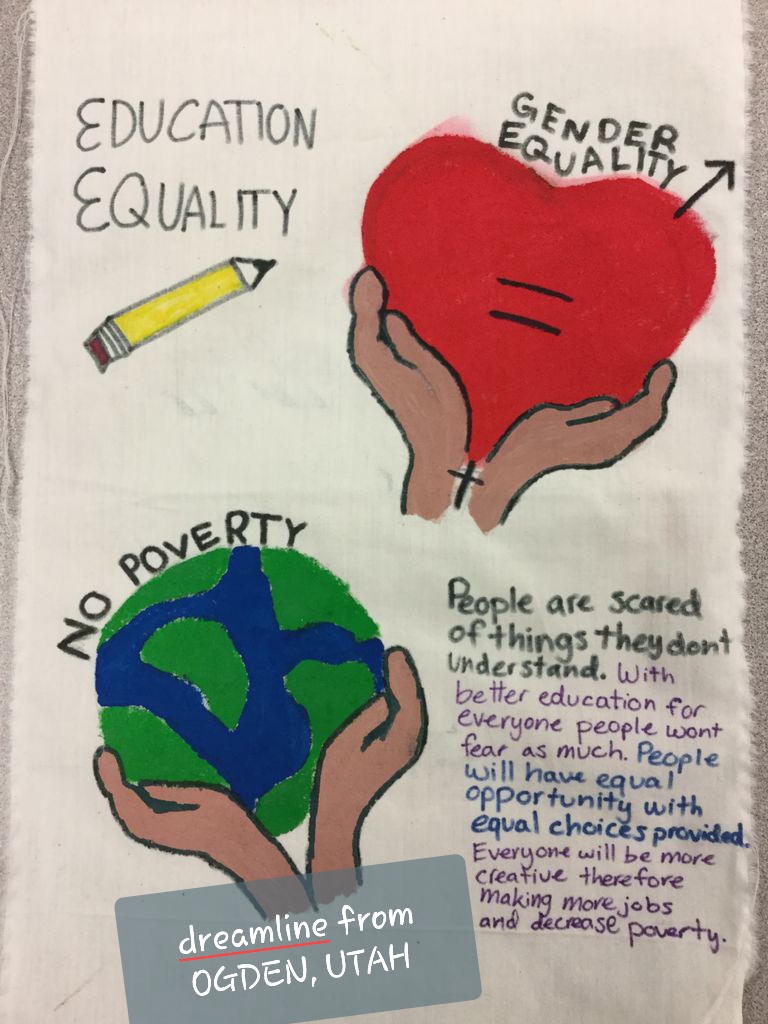 EDUCATION
EQUALITY
GENDER
EQUALITY
=
NO POVERTY
People are scared
of things they dont
understand. With
better education for
everyone people wont
fear as much. People
will have equal
opportunity with
equal choices provided.
Everyone will be more
creative therefore
making more jobs
and decrease poverty.
dreamline from
OGDEN, UTAH